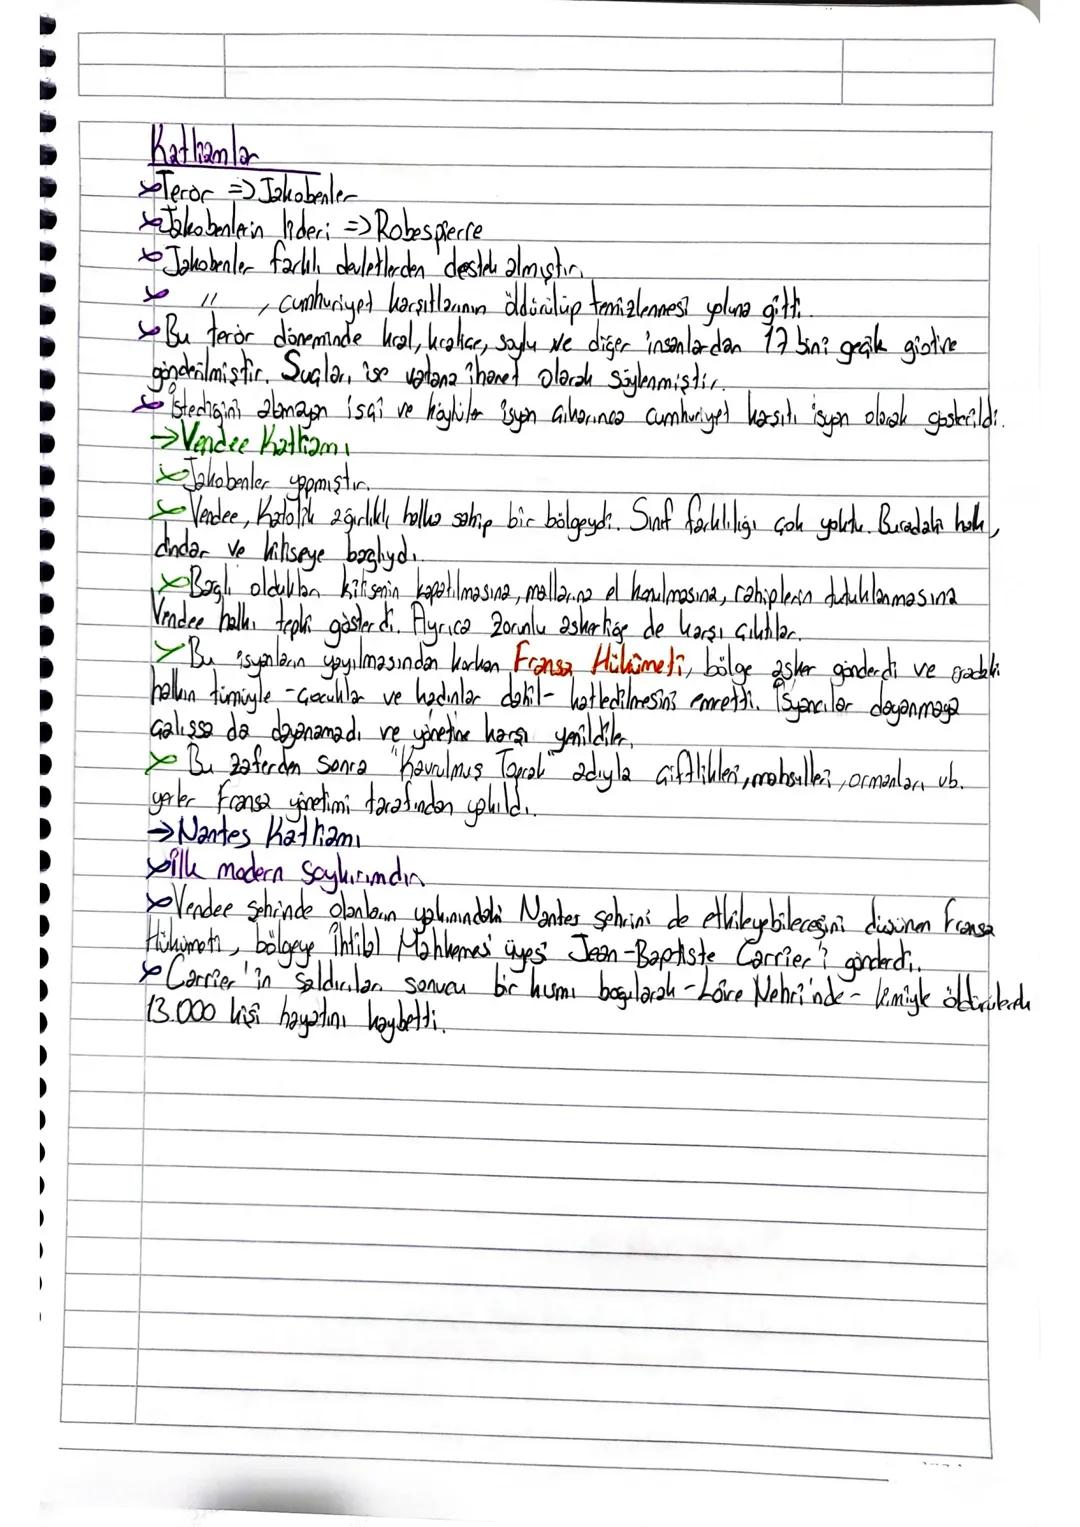 Katliamlar
Terör => Jakobenler
Jakobenlerin lideri => Robespierre
Jakobenler farklı devletlerden destek almıştır.
" , cumhuriyet karşıtlarının öldürülüp temizlenmesi yoluna gitti.
Bu terör döneminde kral, kraliçe, soylu ve diğer insanlardan 17 bini geçik giotine
gönderilmiştir. Suçları ise vatana ihanet olarak söylenmiştir.
İstediğini alamayan işçi ve köylüler isyan çıkarınca cumhuriyet karşıtı isyan olarak gösterildi.
→ Vendee Katliamı
Jakobenler yapmıştır.
Vendee, Katolik ağırlıklı halka sahip bir bölgeydi. Sınıf farklılığı çok yoktu. Buradaki halk,
dindar ve kiliseye bağlıydı.
Bağlı oldukları kilisenin kapatılmasına, mallarına el konulmasına, rahiplerin tutuklanmasına
Vendee halkı tepki gösterdi. Ayrıca zorunlu askerliğe de karşı çıktılar.
Bu isyanların yayılmasından korkan Fransa Hükümeti, bölge asker gönderdi ve oradaki
halkın tümüyle -çocuklar ve kadınlar dahil- katledilmesini emretti. İsyancılar dayanmaya
çalışsa da dayanamadı ve yönetime karşı yenildiler.
Bu zaferden sonra "Kavrulmuş Toprak" adıyla çiftlikleri, mahsulleri, ormanları vb.
yerler Fransa yönetimi tarafından yakıldı.
→ Nantes Katliamı
İlk modern soykırımdır.
Vendee şehrinde olanların yakınındaki Nantes şehrini de etkileyebileceğini düşünen Fransa
Hükümeti, bölgeye İhtilal Mahkemesi üyesi Jean-Baptiste Carrier'i gönderdi.
Carrier'in saldırıları sonucu bir kısmı boğularak -Loire Nehri'nde- kimiyle öldürülerek
13.000 kişi hayatını kaybetti.